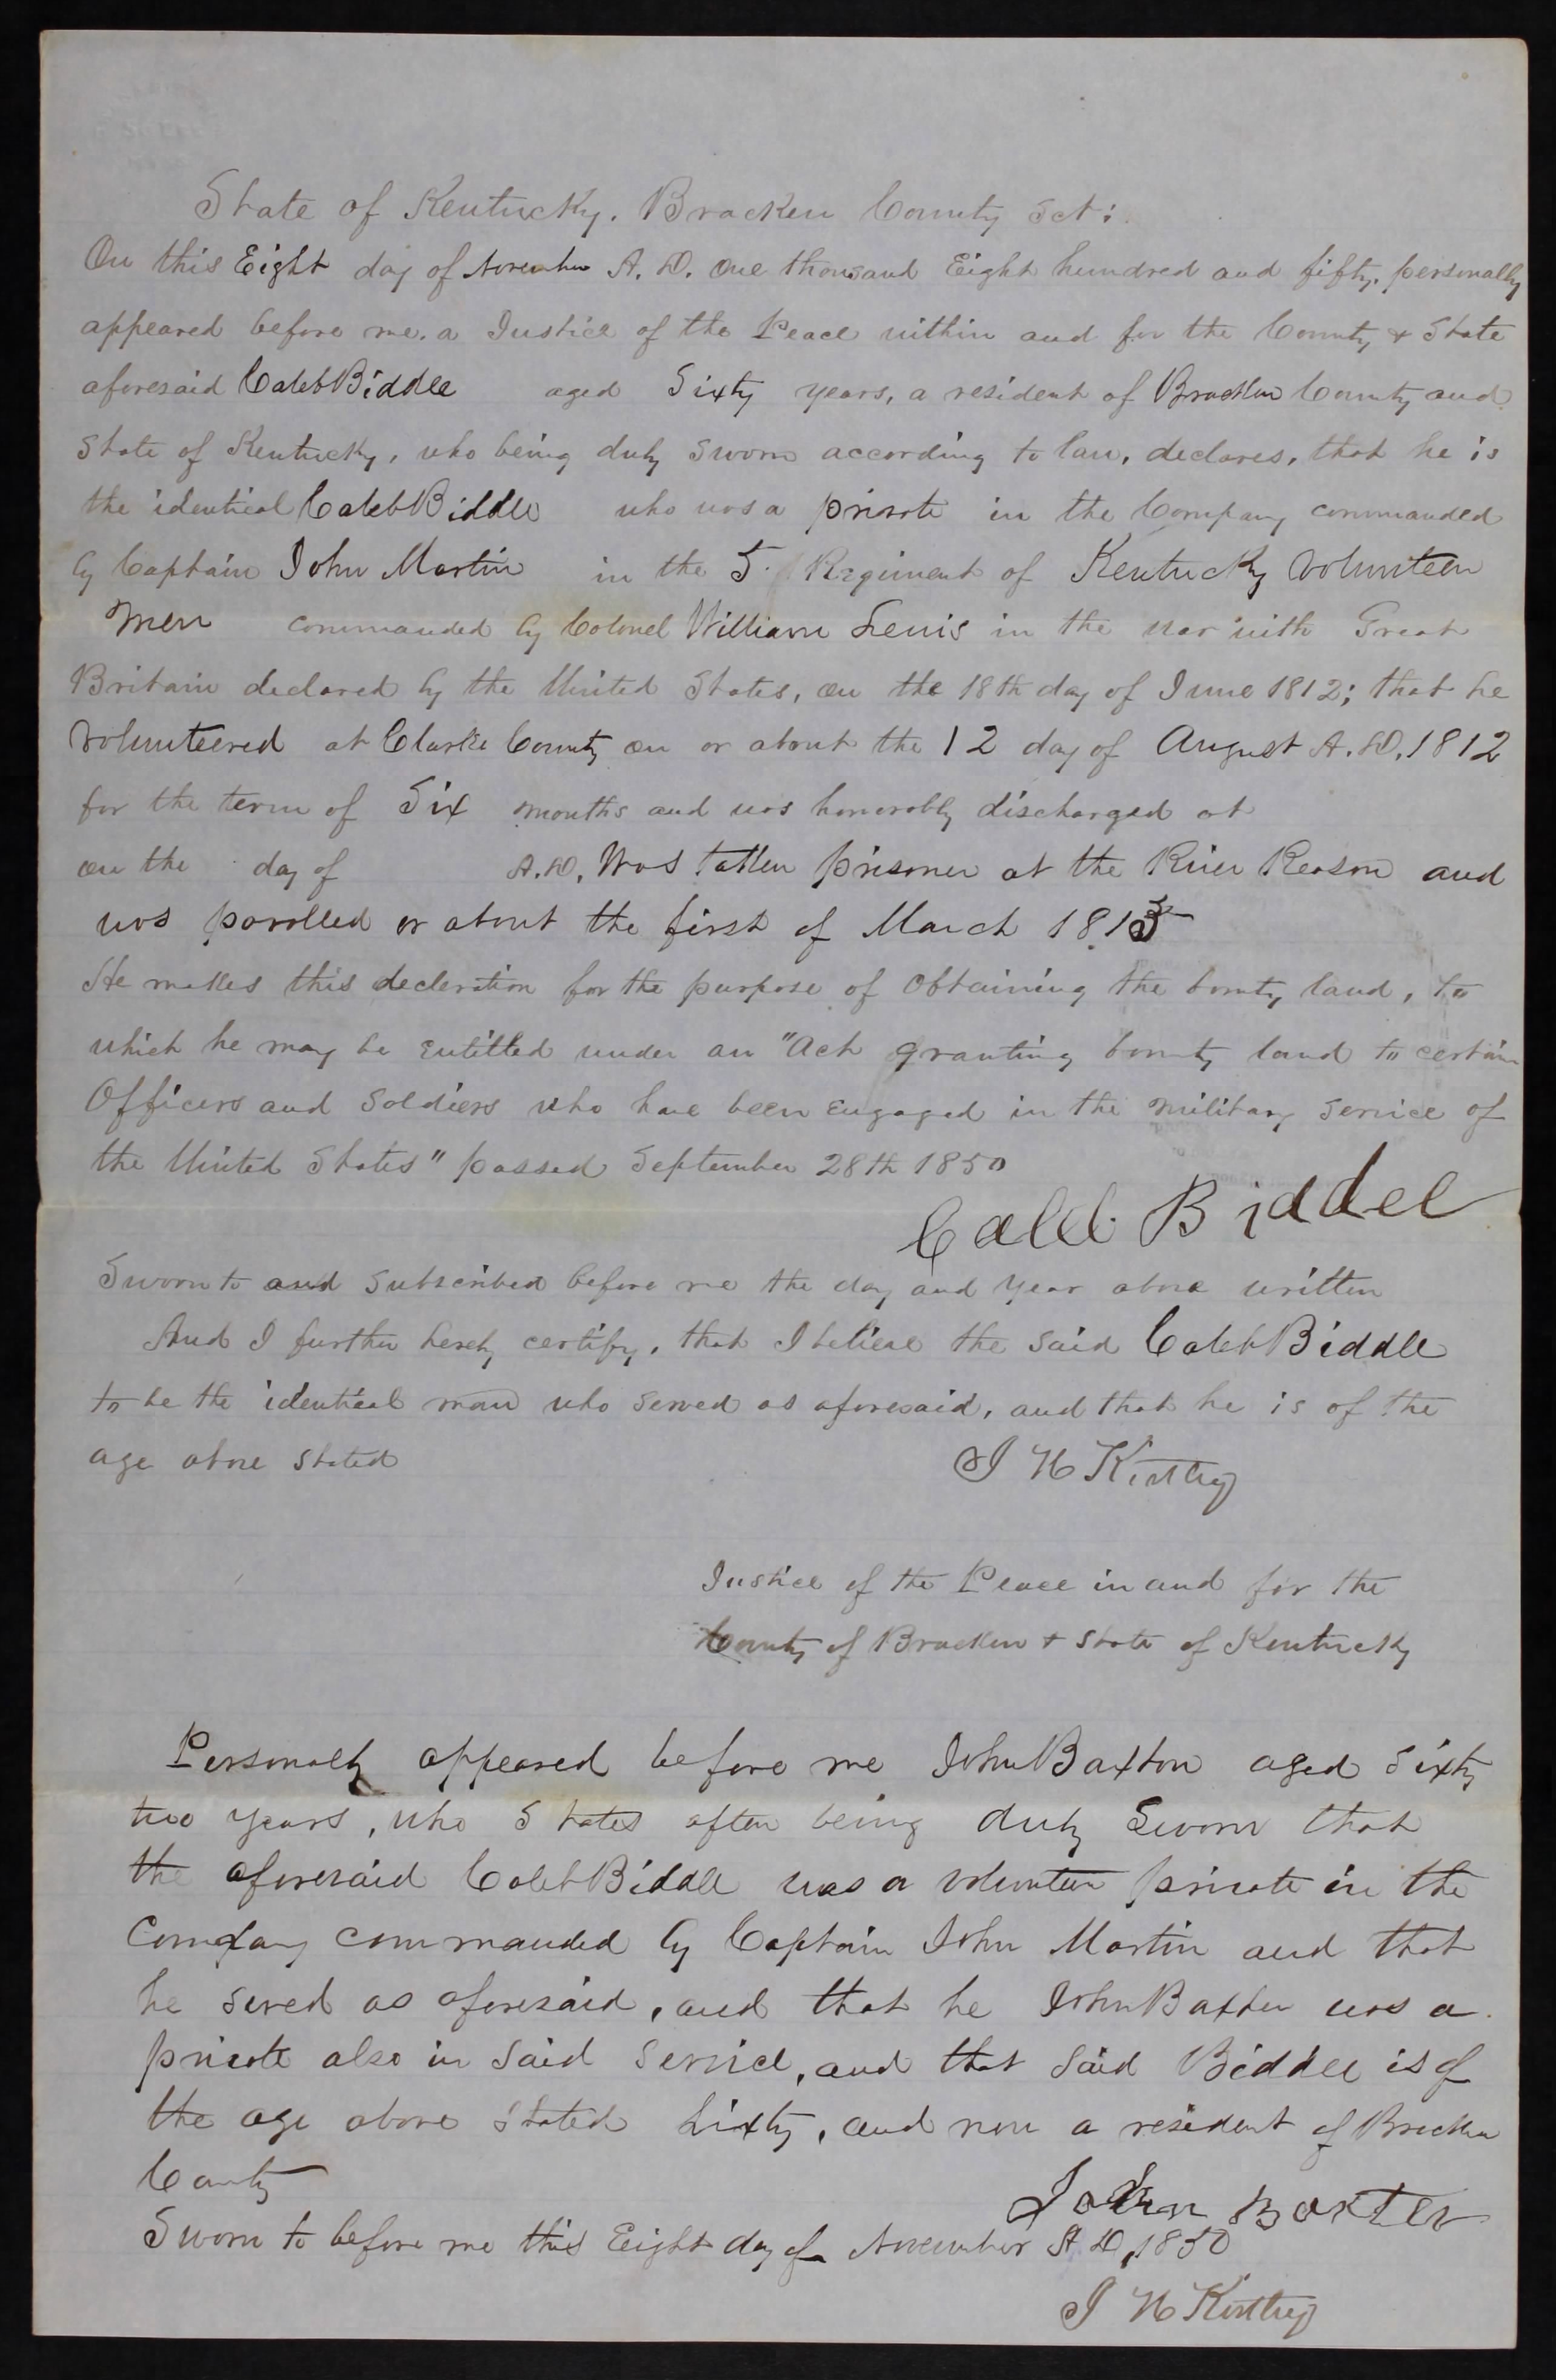 State of Kentucky. Bracken County Sct:
On this Eight day of November A. D. One thousand Eight hundred and fifty, personally
appeared before me. a Justice of the Peace within and for the County & State
aforesaid Caleb Biddle aged Sixty years, a resident of Bracken County and
State of Kentucky, who being duly sworn according to law, declares, that he is
the identical Caleb Biddle who was a private in the Company commanded
by Captain John Martin in the 5. Regiment of Kentucky Volunteer
Men commanded by Colonel William Lewis in the war with Great
Britain declared by the United States, on the 18th day of June 1812; that he
Volunteered at Clarke County on or about the 12 day of August A. D. 1812
for the term of Six months and was honorably discharged at
on the day of A.D. Was taken prisoner at the River Reason and
was parolled or about the first of March 1813
He makes this decleration for the purpose of Obtaining the bounty land, to
which he may be entitled under an "Act granting bounty land to certain
Officers and Soldiers who have been engaged in the military Service of
the United States" passed September 28th 1850
Caleb Biddel
Sworn to and subscribed before me the day and year above written
And I further hereby certify, that I believe the said Caleb Biddle
to be the identical man who served as aforesaid, and that he is of the
age above stated
J H Kirthy
Justice of the Peace in and for the
County of Bracken & State of Kentucky
Personaly appeared before me John Baxton aged Sixty
two years, who States after being duly Sworn that
the aforesaid Caleb Biddle was a volunteer private in the
Company commanded by Captain John Martin and that
he served as aforesaid, and that he John Baxter was a
private also in said Service, and that said Biddle is of
the age above stated Sixty, and now a resident of Bracken
County
John Baxter
Sworn to before me this Eight day of November A D, 1850
J H Kirthy